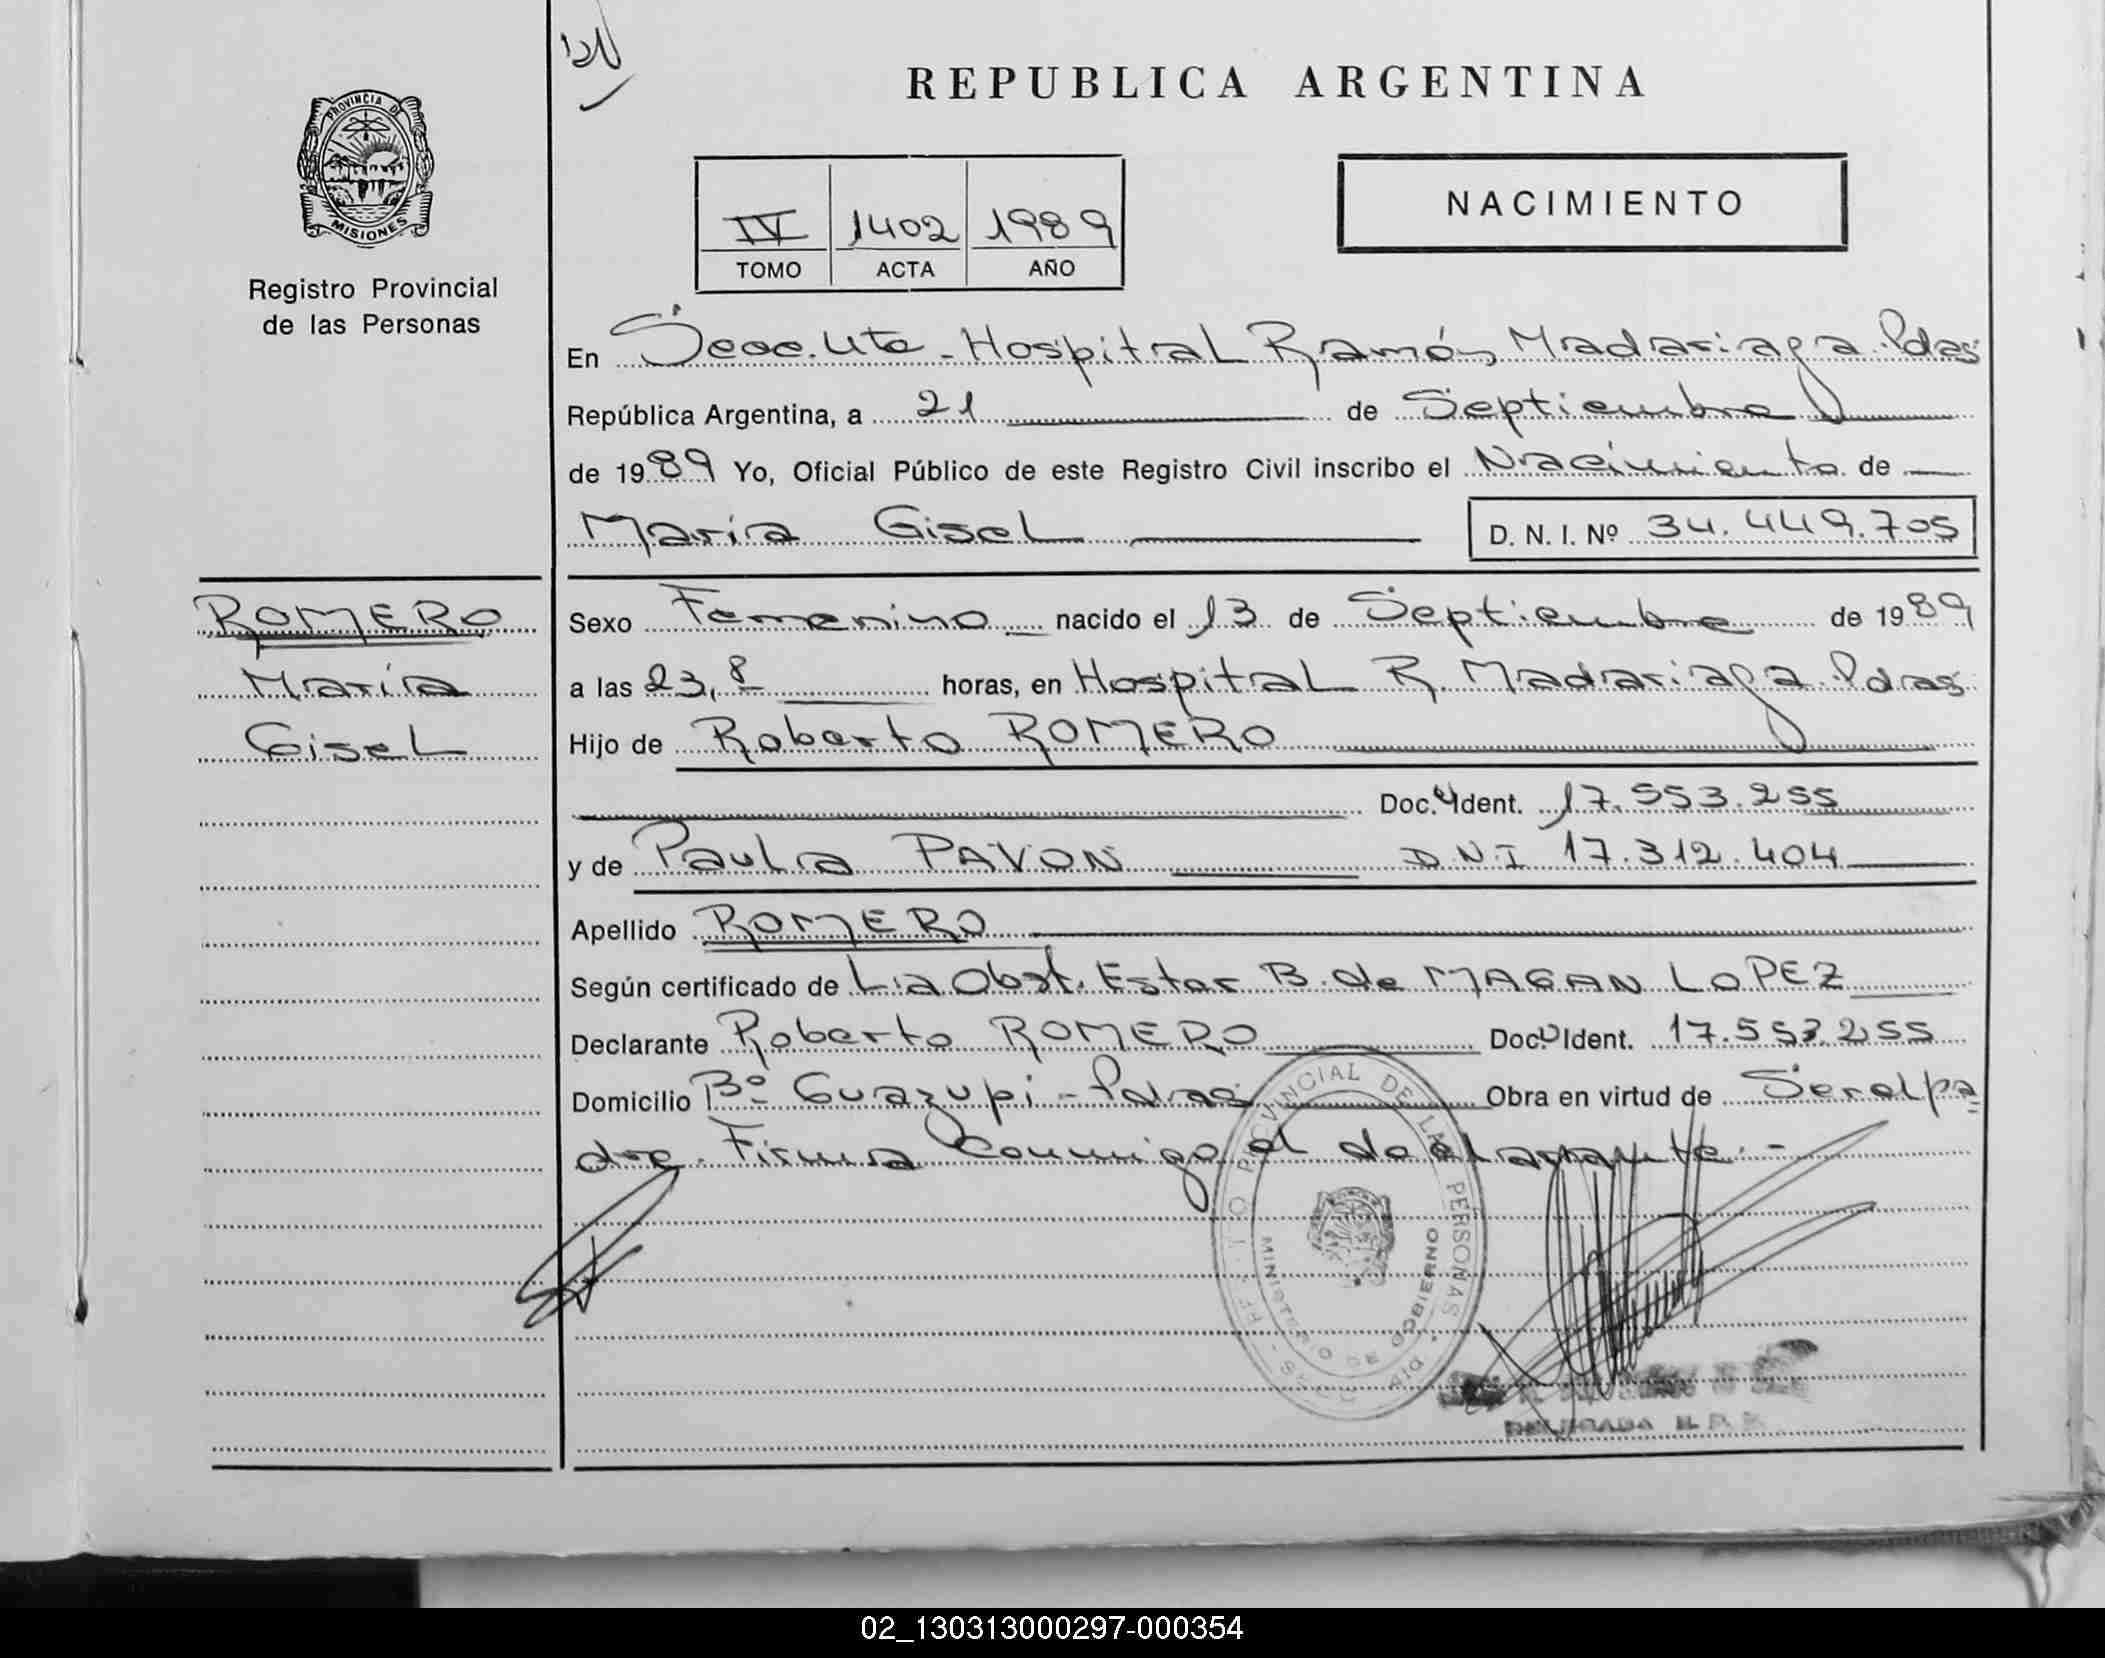 REPUBLICA ARGENTINA
PROVINCIA DE
MISIONES
Registro Provincial
de las Personas
IV 1402 1989
TOMO ACTA AÑO
NACIMIENTO
En Secc. Uta - Hospital Ramón Madariaga. Pdas
República Argentina, a 21 de Septiembre
de 1989 Yo, Oficial Público de este Registro Civil inscribo el Nacimiento de
Maria Gisel D. N. I. Nº 34.449.705
ROMERO
María
Gisel
Sexo Femenino nacido el 13 de Septiembre de 1989
a las 23,8 horas, en Hospital R. Madariaga. Pdas
Hijo de Roberto ROMERO
Doc. Ident. 17.553.255
y de Paula PAVON D.N.I 17.312.404
Apellido ROMERO
Según certificado de La Obst. Ester B. de MAGAN LOPEZ
Declarante Roberto ROMERO Doc. Ident. 17.553.255
Domicilio Bº Guazupi - Pdas Obra en virtud de Ser el pa
dre. Firma Conmigo el declarante.-
PROVINCIAL DE LAS PERSONAS
MINISTERIO DE GOBIERNO
DELEGADA R. P. P.
02_130313000297-000354